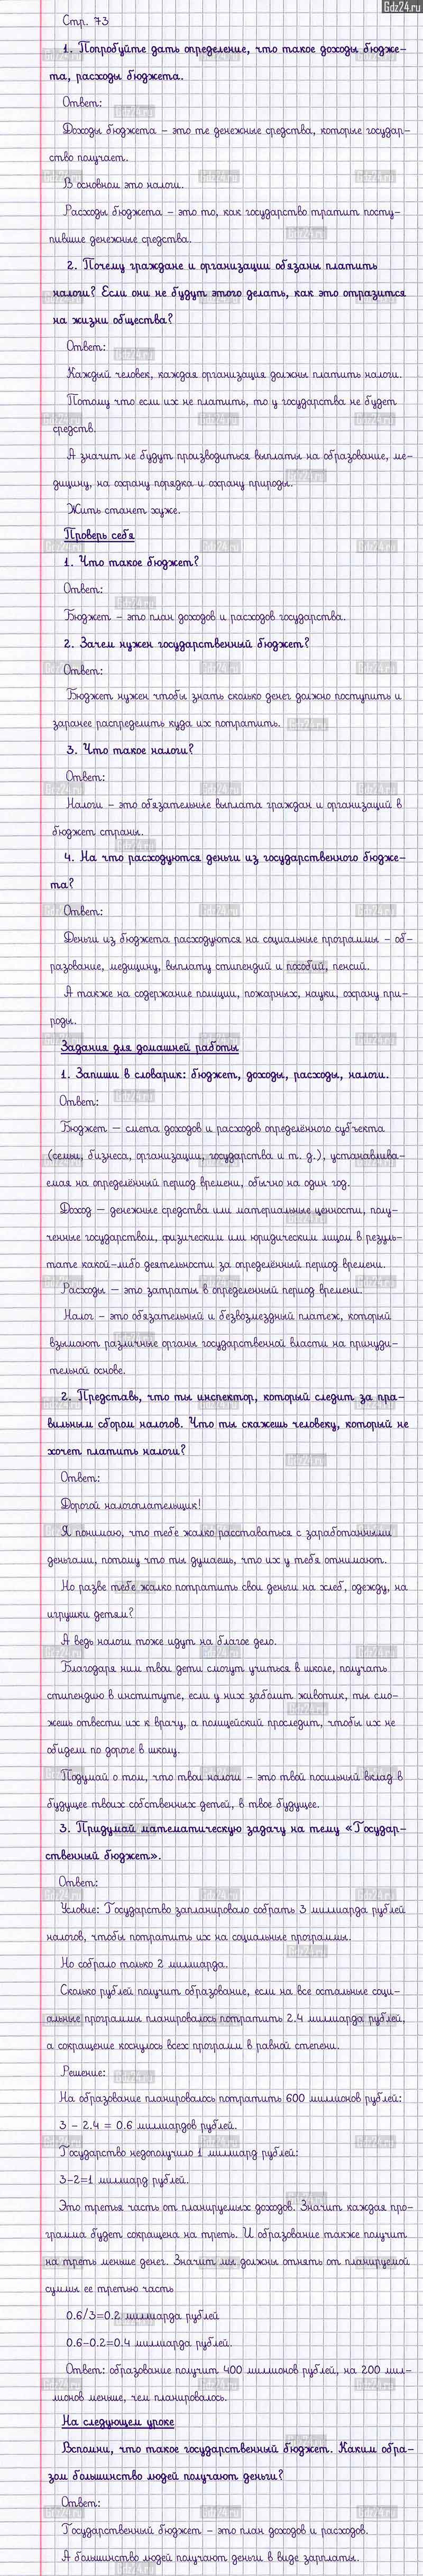 Gdz24.ru
Стр. 73
1. Попробуйте дать определение, что такое доходы бюдже-
та, расходы бюджета.
Ответ:
Доходы бюджета – это те денежные средства, которые государ-
ство получает.
В основном это налоги.
Расходы бюджета – это то, как государство тратит посту-
пившие денежные средства.
2. Почему граждане и организации обязаны платить
налоги? Если они не будут этого делать, как это отразится
на жизни общества?
Ответ:
Каждый человек, каждая организация должны платить налоги.
Потому что если их не платить, то у государства не будет
средств.
А значит не будут производиться выплаты на образование, ме-
дицину, на охрану порядка и охрану природы.
Жить станет хуже.
Проверь себя
1. Что такое бюджет?
Ответ:
Бюджет – это план доходов и расходов государства.
2. Зачем нужен государственный бюджет?
Ответ:
Бюджет нужен чтобы знать сколько денег должно поступить и
заранее распределить куда их потратить.
3. Что такое налоги?
Ответ:
Налоги – это обязательные выплата граждан и организаций в
бюджет страны.
4. На что расходуются деньги из государственного бюдже-
та?
Ответ:
Деньги из бюджета расходуются на социальные программы – об-
разование, медицину, выплату стипендий и пособий, пенсий.
А также на содержание полиции, пожарных, науки, охрану при-
роды.
Задания для домашней работы
1. Запиши в словарик: бюджет, доходы, расходы, налоги.
Ответ:
Бюджет — смета доходов и расходов определённого субъекта
(семьи, бизнеса, организации, государства и т. д.), устанавлива-
емая на определённый период времени, обычно на один год.
Доход — денежные средства или материальные ценности, полу-
ченные государством, физическим или юридическим лицом в резуль-
тате какой-либо деятельности за определённый период времени.
Расходы — это затраты в определенный период времени.
Налог – это обязательный и безвозмездный платеж, который
взымают различные органы государственной власти на принуди-
тельной основе.
2. Представь, что ты инспектор, который следит за пра-
вильным сбором налогов. Что ты скажешь человеку, который не
хочет платить налоги?
Ответ:
Дорогой налогоплательщик!
Я понимаю, что тебе жалко расставаться с заработанными
деньгами, потому что ты думаешь, что их у тебя отнимают.
Но разве тебе жалко потратить свои деньги на хлеб, одежду, на
игрушки детям?
А ведь налоги тоже идут на благое дело.
Благодаря ним твои дети смогут учиться в школе, получать
стипендию в институте, если у них заболит животик, ты смо-
жешь отвести их к врачу, а полицейский проследит, чтобы их не
обидели по дороге в школу.
Подумай о том, что твои налоги – это твой посильный вклад в
будущее твоих собственных детей, в твое будущее.
3. Придумай математическую задачу на тему «Государ-
ственный бюджет».
Ответ:
Условие: Государство запланировало собрать 3 миллиарда рублей
налогов, чтобы потратить их на социальные программы.
Но собрало только 2 миллиарда.
Сколько рублей получит образование, если на все остальные соци-
альные программы планировалось потратить 2.4 миллиарда рублей,
а сокращение коснулось всех программ в равной степени.
Решение:
На образование планировалось потратить 600 миллионов рублей:
3 – 2.4 = 0.6 миллиардов рублей.
Государство недополучило 1 миллиард рублей:
3-2=1 миллиард рублей.
Это третья часть от планируемых доходов. Значит каждая про-
грамма будет сокращена на треть. И образование также получит
на треть меньше денег. Значит мы должны отнять от планируемой
суммы ее третью часть
0.6/3=0.2 миллиарда рублей
0.6-0.2=0.4 миллиарда рублей.
Ответ: образование получит 400 миллионов рублей, на 200 мил-
лионов меньше, чем планировалось.
На следующем уроке
Вспомни, что такое государственный бюджет. Каким обра-
зом большинство людей получают деньги?
Ответ:
Государственный бюджет – это план доходов и расходов.
А большинство людей получают деньги в виде зарплаты.